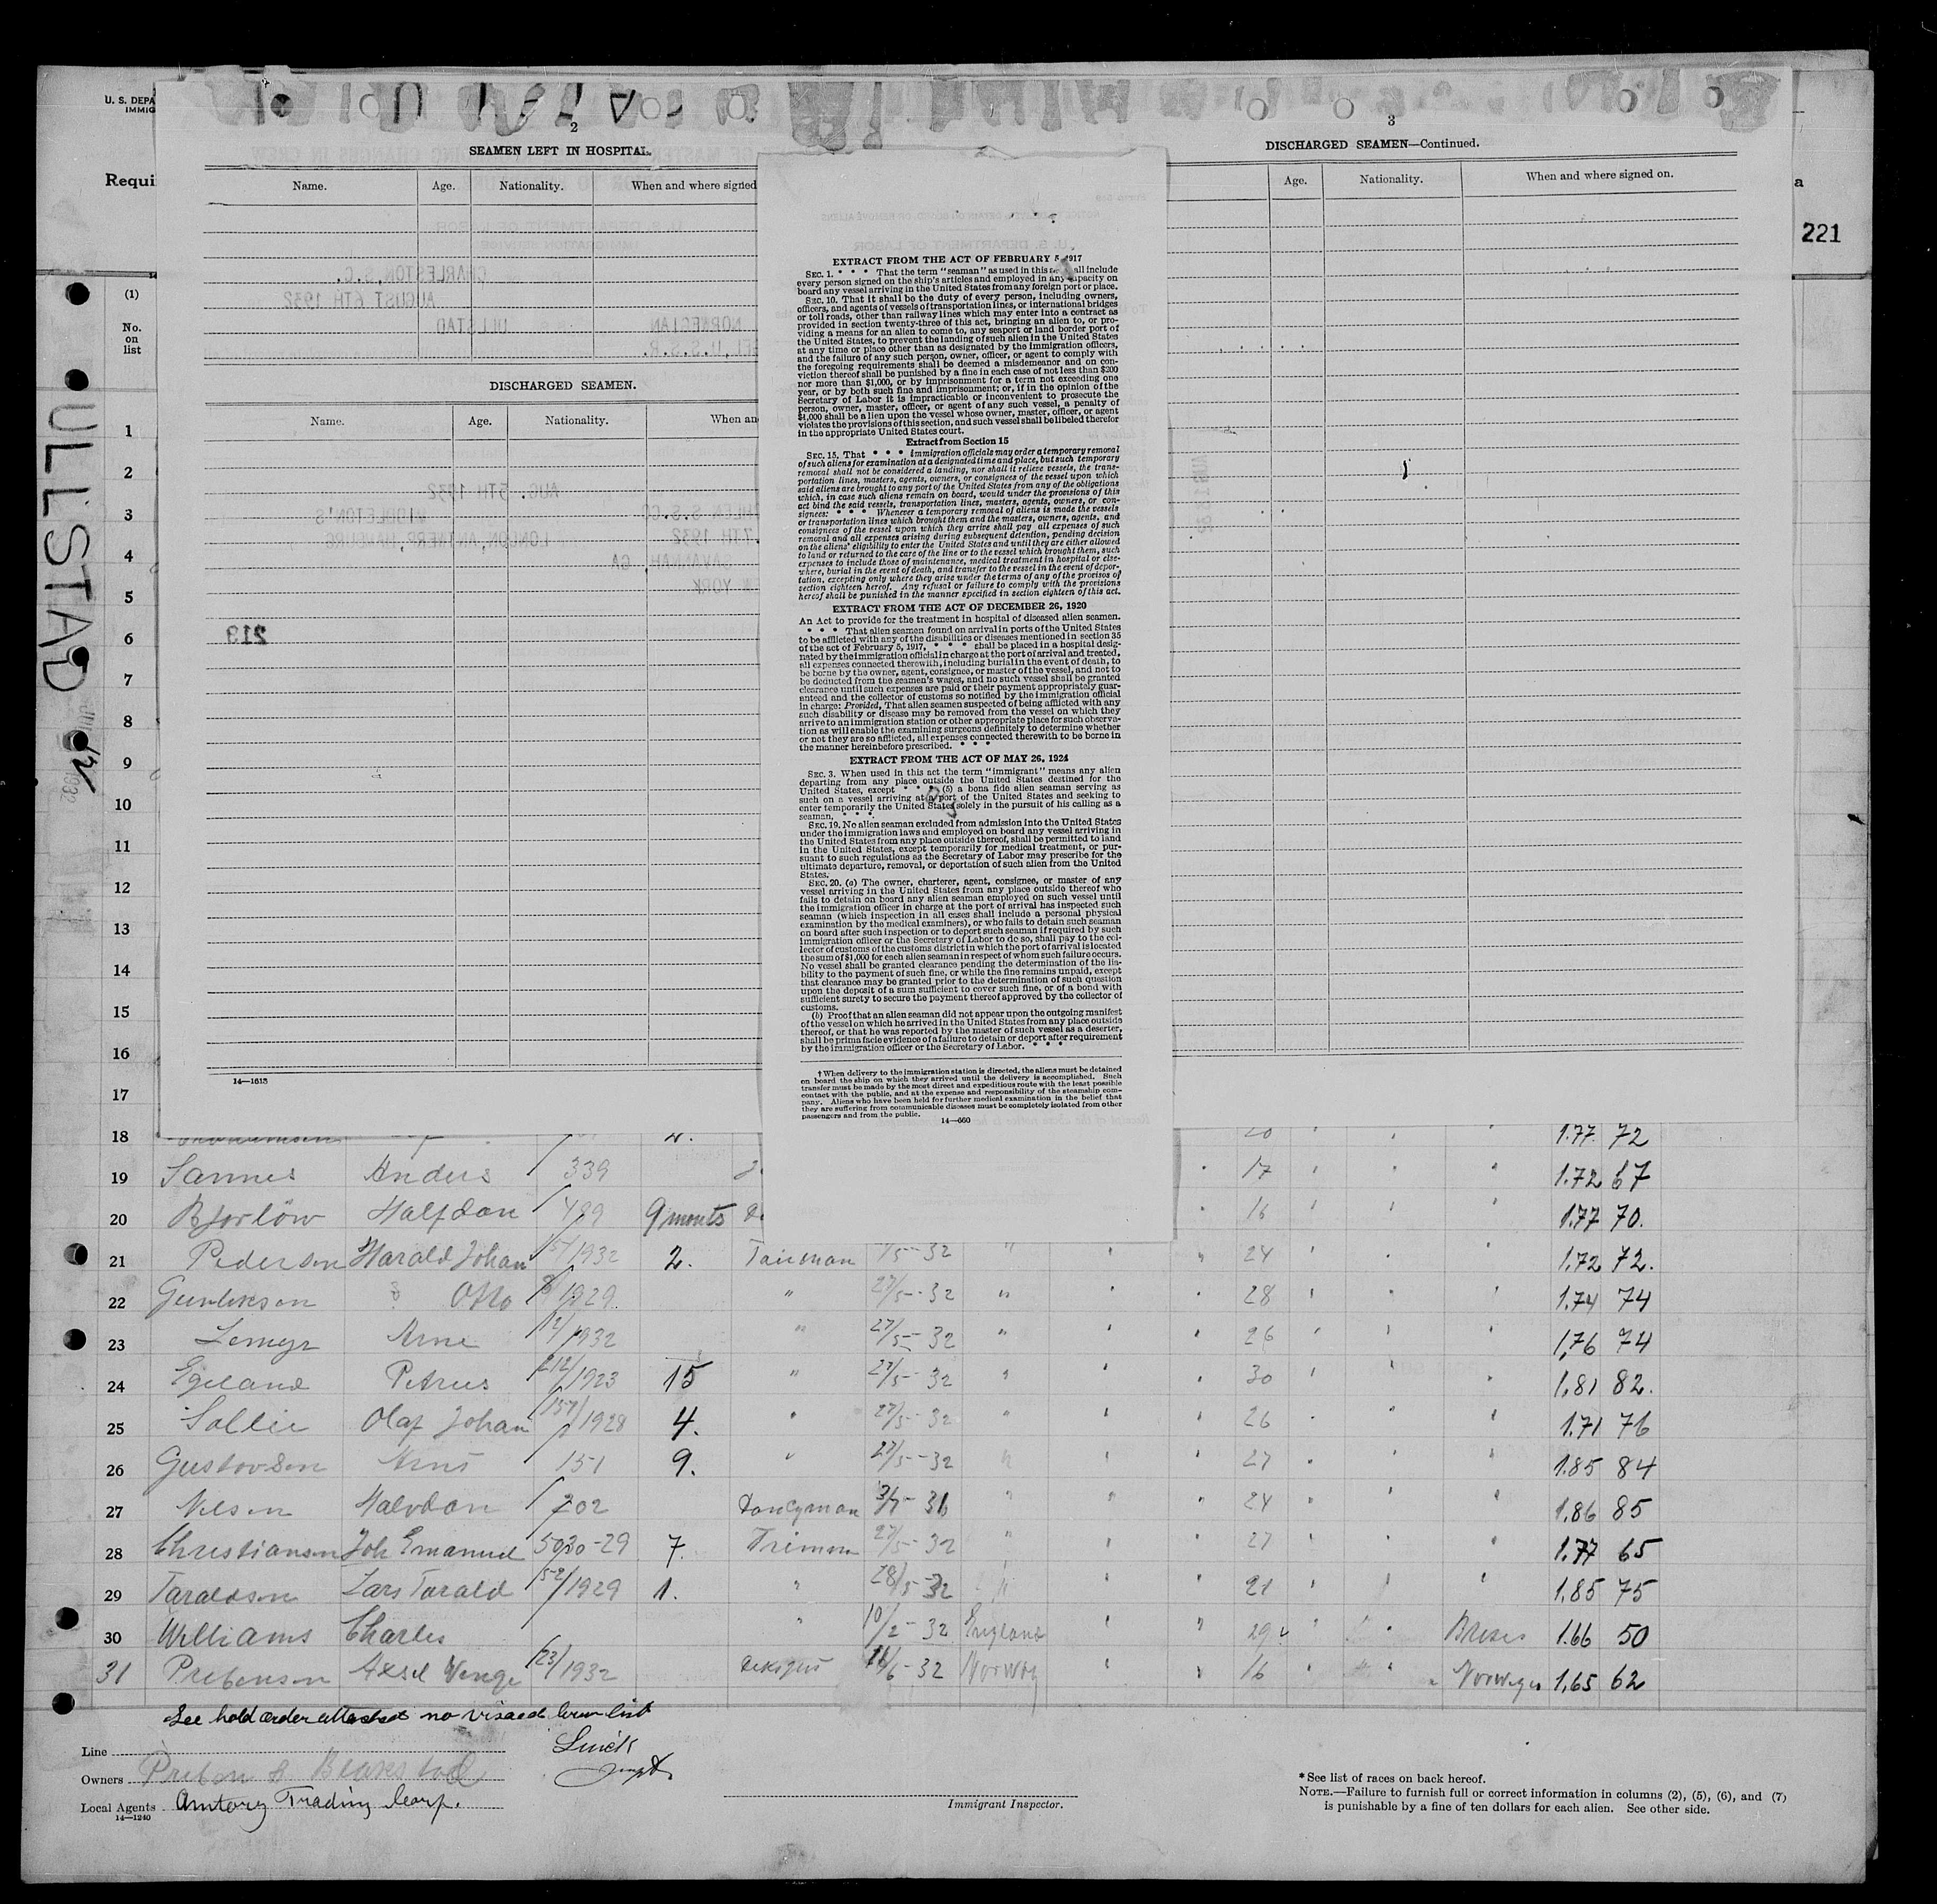 U. S. DEPA
IMMIG
Requi
a
221
(1)
No.
on
list
ULLSTAD
2
SEAMEN LEFT IN HOSPITAL.
Name. Age. Nationality. When and where signed
CHARLESTON, S.C.
AUGUST 6TH 1932
NORWEGIAN ULLSTAD
U.S.S.R.
DISCHARGED SEAMEN.
Name. Age. Nationality. When an
AUG. 5TH 1932
MIDDLETON'S
S.S. CO
7TH 1932 LONDON, ANTWERP, HAMBURG
SAVANNAH, GA
YORK
213
14—1615
3
DISCHARGED SEAMEN—Continued.
Age. Nationality. When and where signed on.
U. S. DEPARTMENT OF LABOR
EXTRACT FROM THE ACT OF FEBRUARY 5, 1917
SEC. 1. * * * That the term "seaman" as used in this act shall include
every person signed on the ship's articles and employed in any capacity on
board any vessel arriving in the United States from any foreign port or place.
SEC. 10. That it shall be the duty of every person, including owners,
officers, and agents of vessels of transportation lines, or international bridges
or toll roads, other than railway lines which may enter into a contract as
provided in section twenty-three of this act, bringing an alien to, or pro-
viding a means for an alien to come to, any seaport or land border port of
the United States, to prevent the landing of such alien in the United States
at any time or place other than as designated by the immigration officers,
and the failure of any such person, owner, officer, or agent to comply with
the foregoing requirements shall be deemed a misdemeanor and on con-
viction thereof shall be punished by a fine in each case of not less than $200
nor more than $1,000, or by imprisonment for a term not exceeding one
year, or by both such fine and imprisonment; or, if in the opinion of the
Secretary of Labor it is impracticable or inconvenient to prosecute the
person, owner, master, officer, or agent of any such vessel, a penalty of
$1,000 shall be a lien upon the vessel whose owner, master, officer, or agent
violates the provisions of this section, and such vessel shall be libeled therefor
in the appropriate United States court.
Extract from Section 15
SEC. 15. That * * * Immigration officials may order a temporary removal
of such aliens for examination at a designated time and place, but such temporary
removal shall not be considered a landing, nor shall it relieve vessels, the trans-
portation lines, masters, agents, owners, or consignees of the vessel upon which
said aliens are brought to any port of the United States from any of the obligations
which, in case such aliens remain on board, would under the provisions of this
act bind the said vessels, transportation lines, masters, agents, owners, or con-
signees: * * * Whenever a temporary removal of aliens is made the vessels
or transportation lines which brought them and the masters, owners, agents, and
consignees of the vessel upon which they arrive shall pay all expenses of such
removal and all expenses arising during subsequent detention, pending decision
on the aliens' eligibility to enter the United States and until they are either allowed
to land or returned to the care of the line or to the vessel which brought them, such
expenses to include those of maintenance, medical treatment in hospital or else-
where, burial in the event of death, and transfer to the vessel in the event of depor-
tation, excepting only where they arise under the terms of any of the provisos of
section eighteen hereof. Any refusal or failure to comply with the provisions
hereof shall be punished in the manner specified in section eighteen of this act.
EXTRACT FROM THE ACT OF DECEMBER 26, 1920
An Act to provide for the treatment in hospital of diseased alien seamen.
* * * That alien seamen found on arrival in ports of the United States
to be afflicted with any of the disabilities or diseases mentioned in section 35
of the act of February 5, 1917, * * * shall be placed in a hospital desig-
nated by the immigration official in charge at the port of arrival and treated,
all expenses connected therewith, including burial in the event of death, to
be borne by the owner, agent, consignee, or master of the vessel, and not to
be deducted from the seamen's wages, and no such vessel shall be granted
clearance until such expenses are paid or their payment appropriately guar-
anteed and the collector of customs so notified by the immigration official
in charge: Provided, That alien seamen suspected of being afflicted with any
such disability or disease may be removed from the vessel on which they
arrive to an immigration station or other appropriate place for such observa-
tion as will enable the examining surgeons definitely to determine whether
or not they are so afflicted, all expenses connected therewith to be borne in
the manner hereinbefore prescribed. * * *
EXTRACT FROM THE ACT OF MAY 26, 1924
SEC. 3. When used in this act the term "immigrant" means any alien
departing from any place outside the United States destined for the
United States, except * * * (5) a bona fide alien seaman serving as
such on a vessel arriving at a port of the United States and seeking to
enter temporarily the United States solely in the pursuit of his calling as a
seaman. * * *
SEC. 19. No alien seaman excluded from admission into the United States
under the immigration laws and employed on board any vessel arriving in
the United States from any place outside thereof, shall be permitted to land
in the United States, except temporarily for medical treatment, or pur-
suant to such regulations as the Secretary of Labor may prescribe for the
ultimate departure, removal, or deportation of such alien from the United
States.
SEC. 20. (a) The owner, charterer, agent, consignee, or master of any
vessel arriving in the United States from any place outside thereof who
fails to detain on board any alien seaman employed on such vessel until
the immigration officer in charge at the port of arrival has inspected such
seaman (which inspection in all cases shall include a personal physical
examination by the medical examiners), or who fails to detain such seaman
on board after such inspection or to deport such seaman if required by such
immigration officer or the Secretary of Labor to do so, shall pay to the col-
lector of customs of the customs district in which the port of arrival is located
the sum of $1,000 for each alien seaman in respect of whom such failure occurs.
No vessel shall be granted clearance pending the determination of the lia-
bility to the payment of such fine, or while the fine remains unpaid, except
that clearance may be granted prior to the determination of such question
upon the deposit of a sum sufficient to cover such fine, or of a bond with
sufficient surety to secure the payment thereof approved by the collector of
customs.
(b) Proof that an alien seaman did not appear upon the outgoing manifest
of the vessel on which he arrived in the United States from any place outside
thereof, or that he was reported by the master of such vessel as a deserter,
shall be prima facie evidence of a failure to detain or deport after requirement
by the immigration officer or the Secretary of Labor. * * *
† When delivery to the immigration station is directed, the aliens must be detained
on board the ship on which they arrived until the delivery is accomplished. Such
transfer must be made by the most direct and expeditious route with the least possible
contact with the public, and at the expense and responsibility of the steamship com-
pany. Aliens who have been held for further medical examination in the belief that
they are suffering from communicable diseases must be completely isolated from other
passengers and from the public.
14—660
1
2
3
4
5
6
7
8
9
10
11
12
13
14
15
16
17
18 20 1.77 72
19 Sannes Anders 339 17 1.72 67
20 Bjorlöw Halfdan 489 9 monts 16 1.77 70.
21 Pederson Harald Johan 1932 2. /5-32 " 24 1.72 72.
22 Otto 1929 " 27/5-32 " 28 1.74 74
23 Arne 12/1932 " 27/5-32 " 26 1,76 74
24 Egeland Petrus 212/1923 15 " 27/5-32 " 30 1,81 82.
25 Sollie Olaf Johan 157/1928 4. " 27/5-32 " 26 1.71 76
26 Gustavson 151 9. " 27/5-32 " 27 1.85 84
27 Nilsen Halvdan 202 Donkyman 31 " 24 1.86 85
28 Christiansen Joh Emanuel 29 7. Trimm 27/5-32 " 27 1.77 65
29 Taraldsen Lars Tarald 52/1929 1. " 28/5-32 " 21 1.85 75
30 Williams Charles " 10/2-32 England 29 1.66 50
31 Prebensen Axsel 123/1932 6-32 Norway 16 Norweges 1,65 62
See hold order attached no visaed crew list
Line
Owners
Local Agents Amtorg Trading Corp.
14—1240
Immigrant Inspector.
* See list of races on back hereof.
NOTE.—Failure to furnish full or correct information in columns (2), (5), (6), and (7)
is punishable by a fine of ten dollars for each alien. See other side.